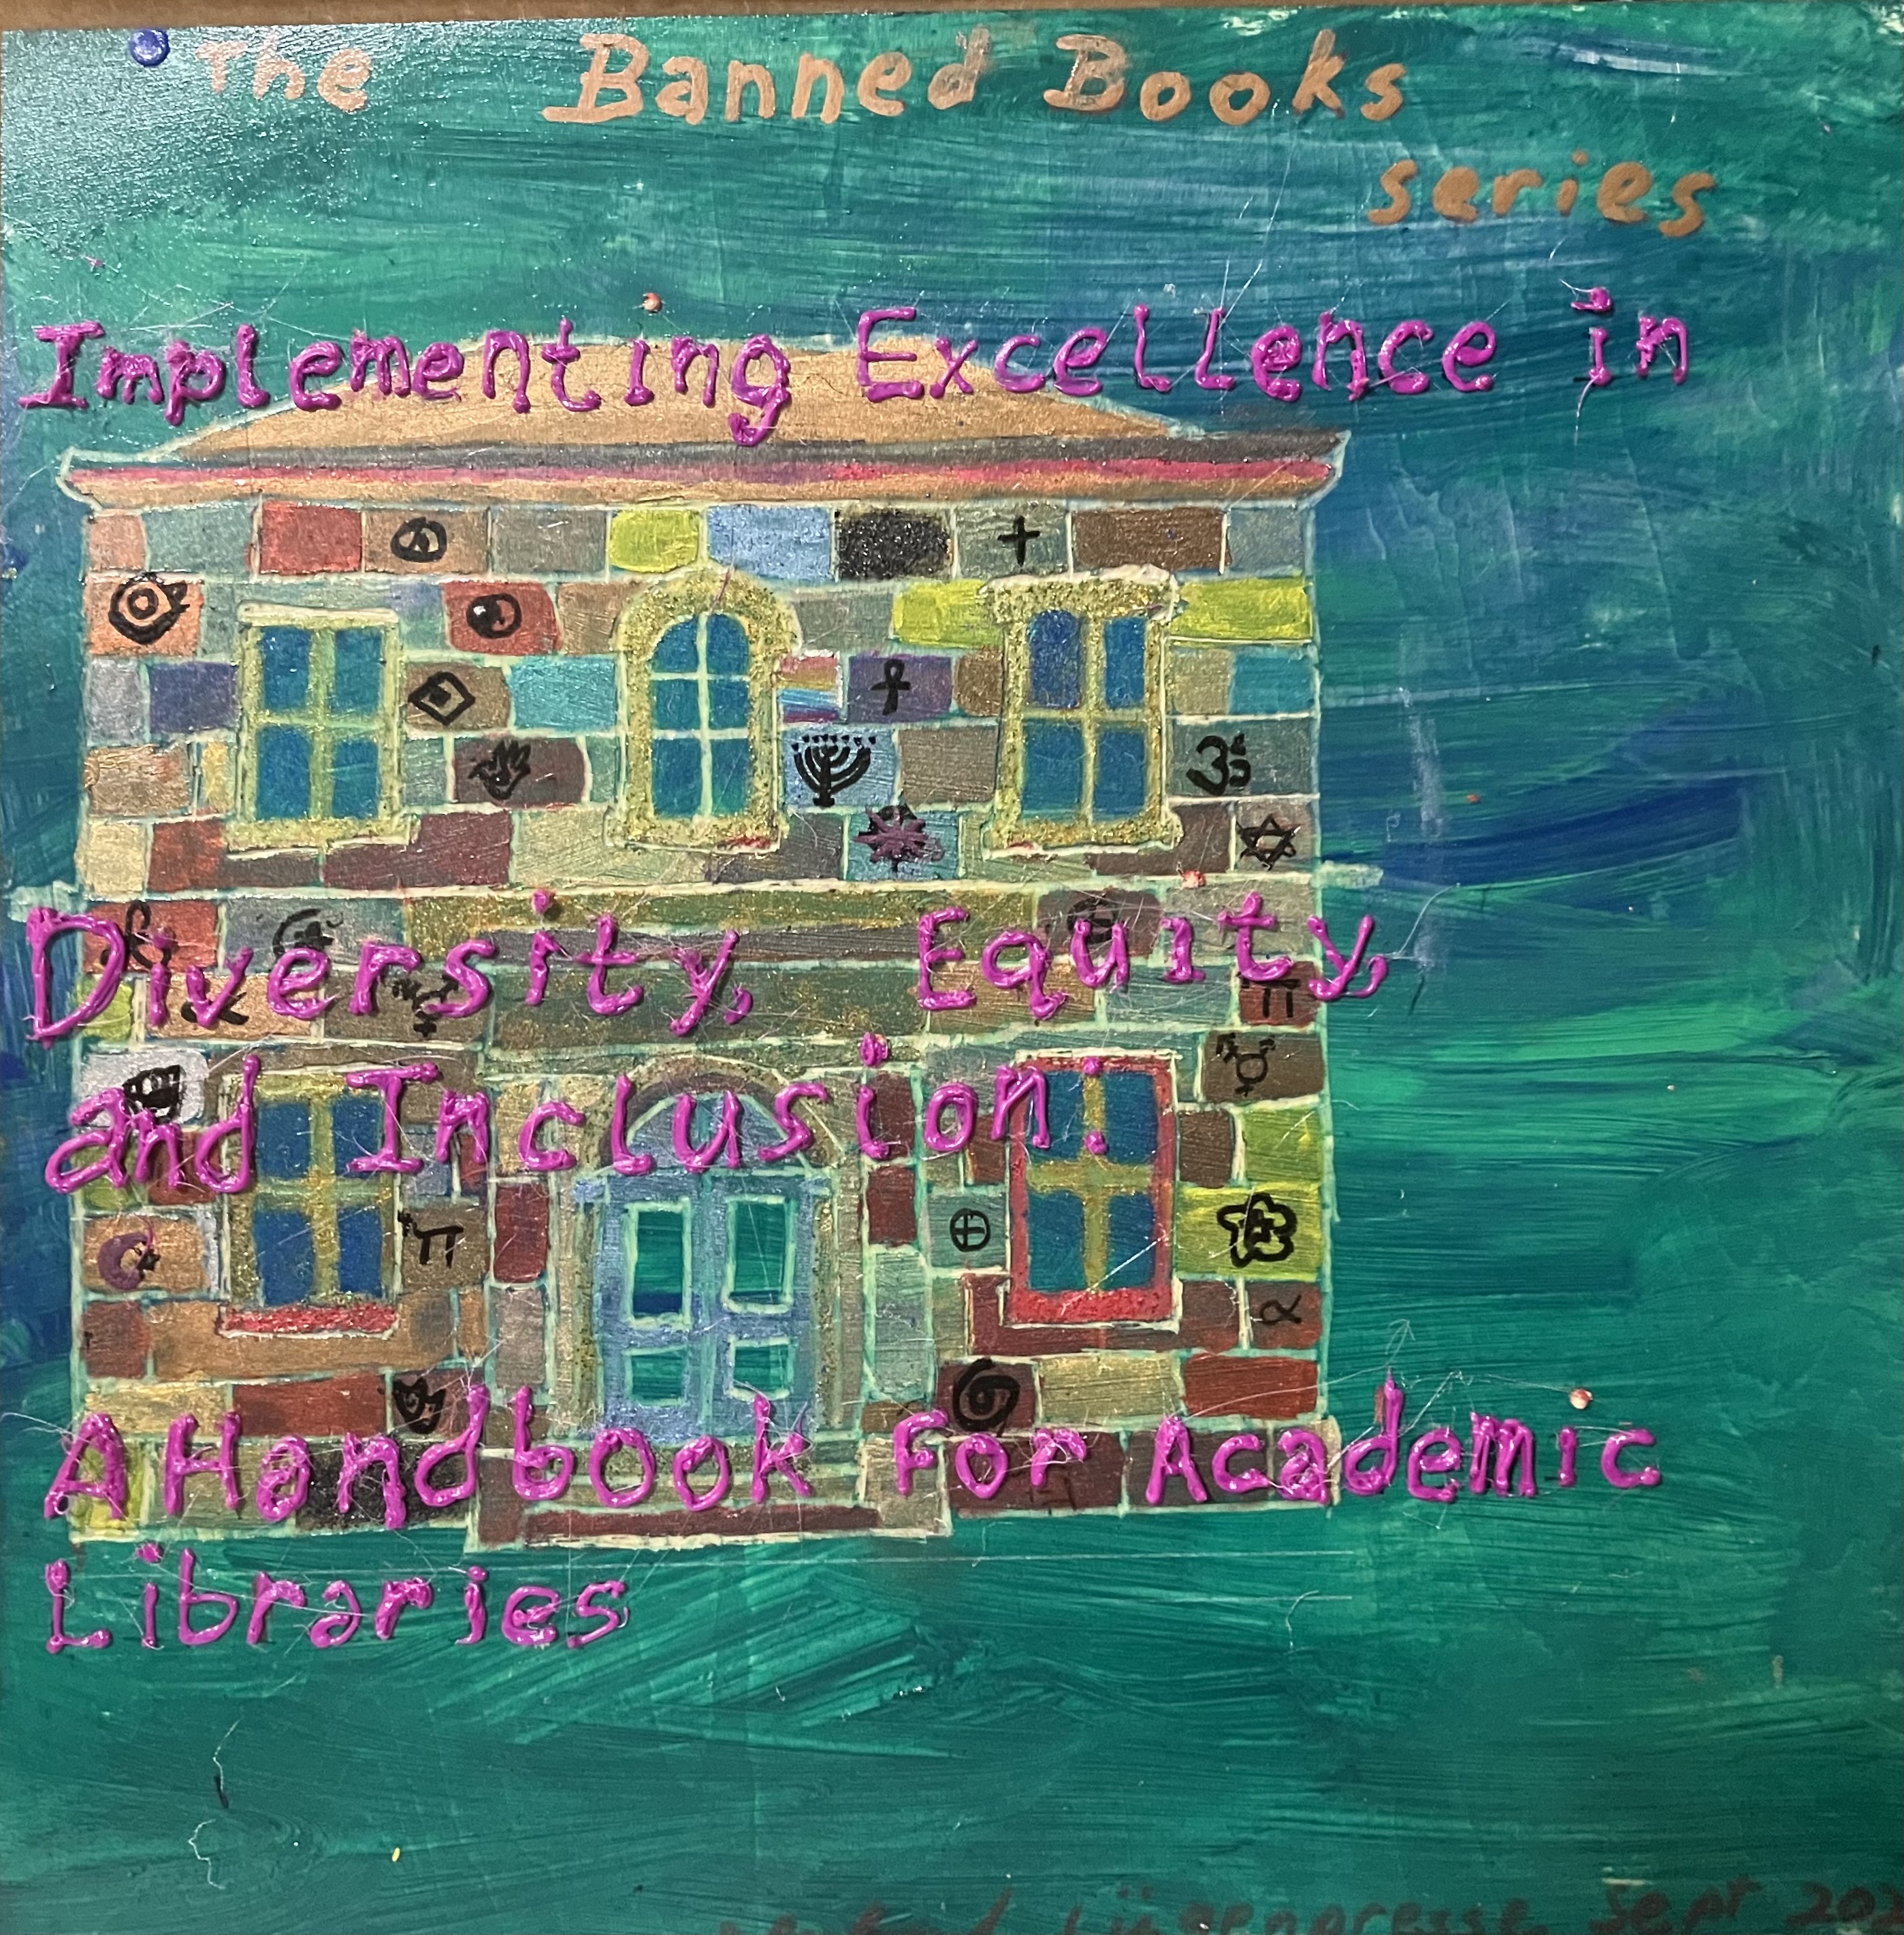 The Banned Books
series
Implementing Excellence in
Diversity, Equity,
and Inclusion:
A Handbook For Academic
Libraries
Lügenpresse Sept